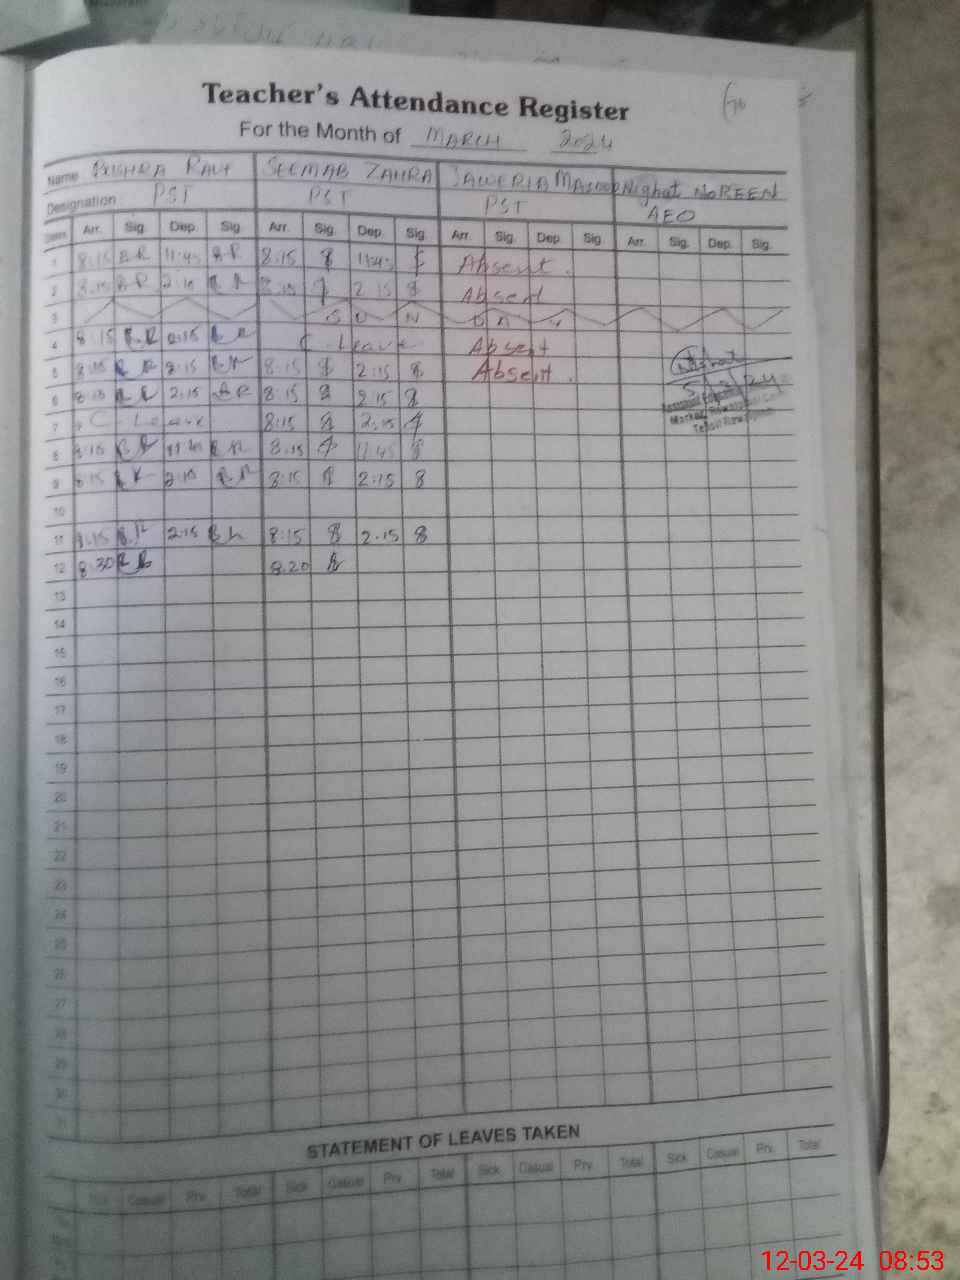 Teacher's Attendance Register
For the Month of MARCH 2024
Name BUSHRA RAUF SEEMAB ZAHRA JAWERIA MASOOD Nighat NOREEN
Designation PST PST PST AEO
Arr. Sig. Dep. Sig. Arr. Sig. Dep. Sig. Arr. Sig. Dep. Sig. Arr. Sig. Dep. Sig.
1 8:15 B.R 11:45 B.R 8:15 11:45 Absent.
2 8:15 B.R 2:15 B R 8:15 2:15 Absent
3 S U N D A Y
4 8:15 B.R 2:15 B R C Leave Absent
5 8:15 B R 2:15 B R 8:15 2:15 Absent.
5/3/24
6 8:15 B R 2:15 B R 8:15 2:15
7 C. Leave 8:15 2:15
8 8:15 B R 11:45 B R 8:15 11:45
9 8:15 B R 2:15 B R 8:15 2:15
10
11 8:15 B.R 2:15 B R 8:15 2:15
12 8:30 B R 8:20
13
14
15
16
17
18
19
20
21
22
23
24
25
26
27
28
29
30
31
STATEMENT OF LEAVES TAKEN
Sick Casual Prv. Total Sick Casual Prv. Total Sick Casual Prv. Total Sick Casual Prv. Total
12-03-24 08:53